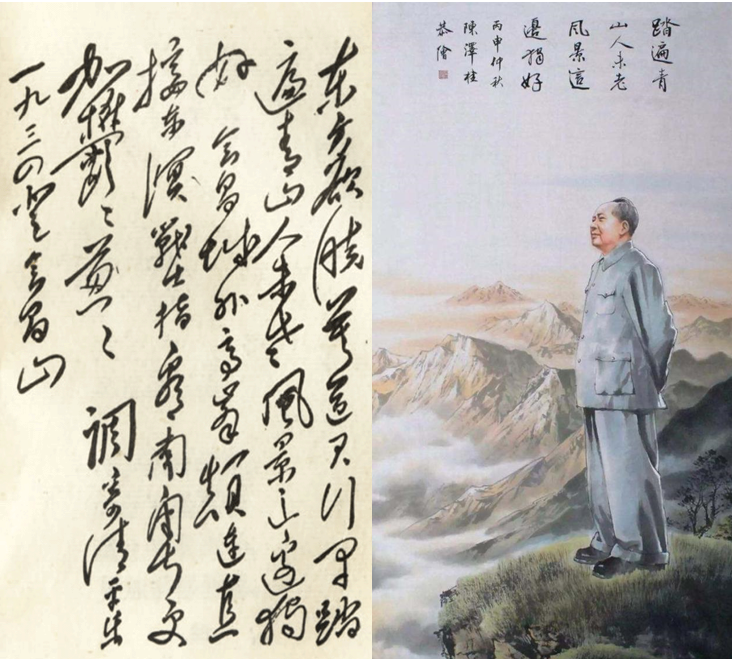 东方欲晓莫道君行早踏
遍青山人未老風景这边獨
好 会昌城外高峯顛連直
接东溟戰士指看南粤更
加鬱々葱々 調寄清平乐
一九三四登会昌山
踏遍青
山人未老
風景這
邊獨好
丙申仲秋
陳澤桂
恭繪